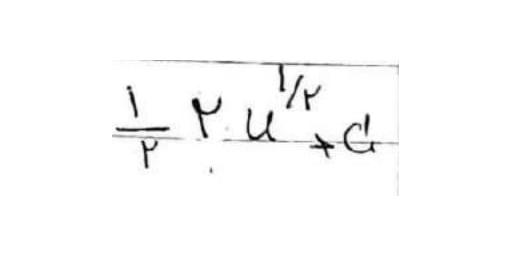 \frac{۱}{۲} ۲. u^{۱/۲} + C